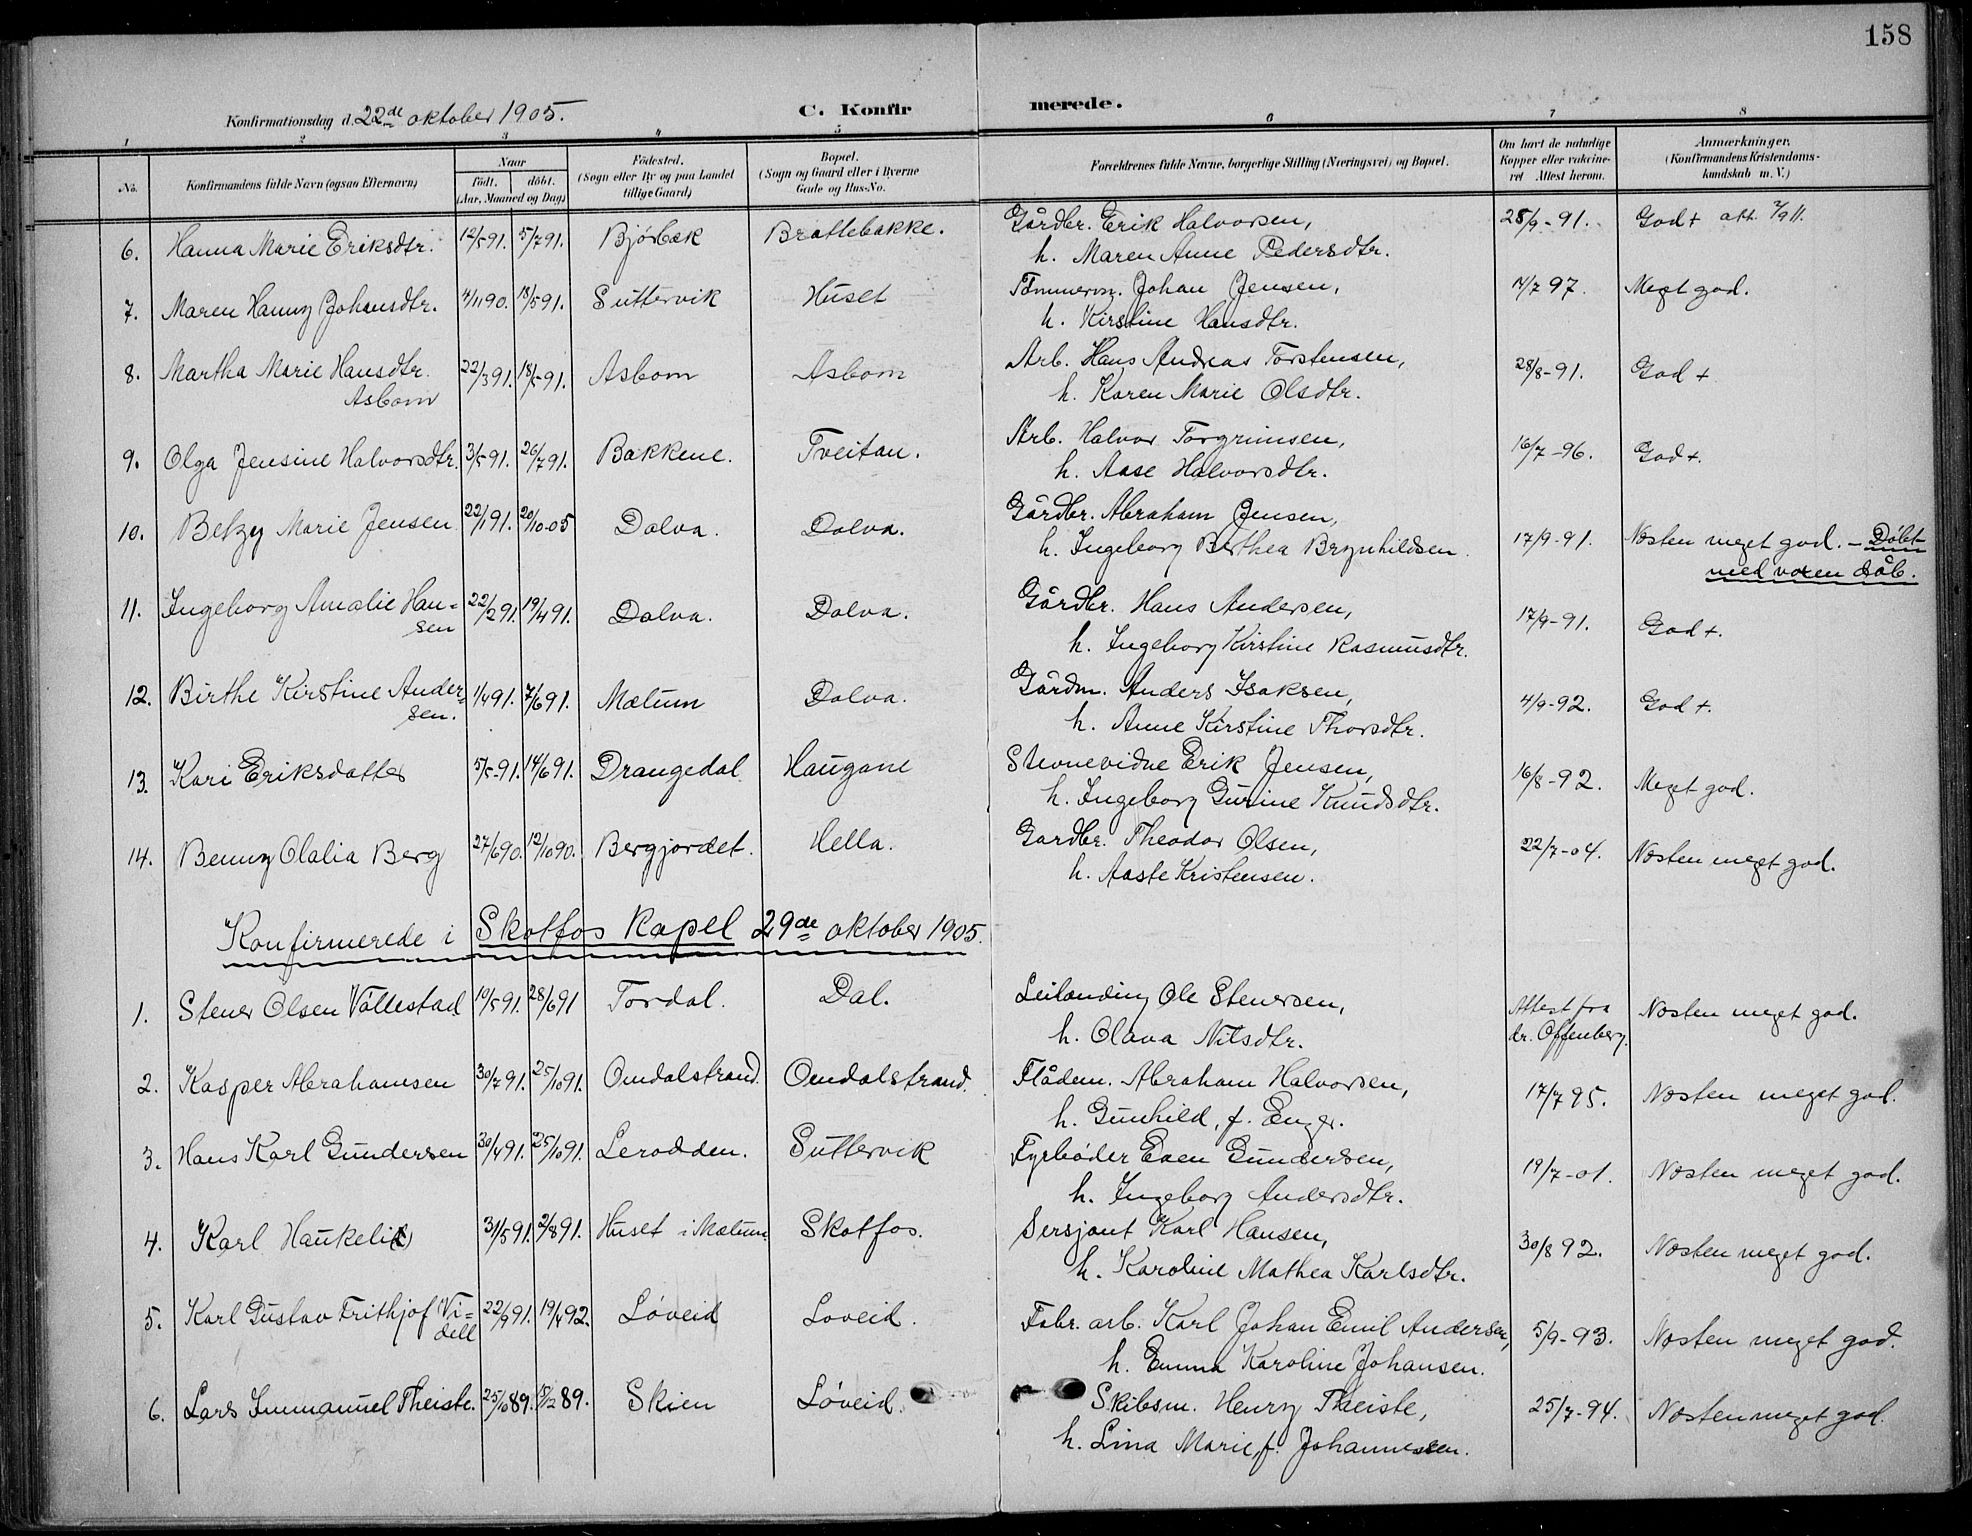 158
Konfirmationsdag d. 22de oktober 1905.
C. Konfirmerede.
1 2 3 4 5 6 7 8
No.
Konfirmandens fulde Navn (ogsaa Efternavn)
Naar
födt. döbt.
(Aar, Maaned og Dag)
Födested.
(Sogn eller By og paa Landet
tillige Gaard)
Bopæl.
(Sogn og Gaard eller i Byerne
Gade og Hus-No.
Forældrenes fulde Navne, borgerlige Stilling (Næringsvei) og Bopæl.
Om havt de naturlige
Kopper eller vaccine-
ret Attest herom.
Anmærkninger.
(Konfirmandens Kristendoms-
kundskab m. V.)
6. Hanna Marie Eriksdtr. 12/5 91. 5/7 91. Bjørbæk Brattebakke. Gårdbr. Erik Halvorsen, 28/9-91. God + att. 7/9 11.
h. Maren Anne Pedersdtr.
7. Maren Hanny Johansdtr. 4/11 90. 18/5 91. Suttervik Huset Tømmerm. Johan Jensen, 14/7 97. Meget god.
h. Kirstine Hansdtr.
8. Martha Marie Hansdtr. 22/3 91. 18/5-91. Asbom Asbom Arb. Hans Andreas Torstensen, 28/8-91. God +
Asbom
h. Karen Marie Olsdtr.
9. Olga Jensine Halvorsdtr. 3/5 91. 26/7 91. Bakkene. Tveitan. Arb. Halvor Torgrimsen, 16/7-96. God +.
h. Aase Halvorsdtr.
10. Betzy Marie Jensen 22/1 91. 20/10-05 Dalva. Dalva. Gårdbr. Abraham Jensen,
h. Ingeborg Berthea Brynhildsen. 17/9-91. Næsten meget god. - Døbt
med voxen dåb.
11. Ingeborg Amalie Han= 22/2 91. 19/4 91. Dalva. Dalva. Gårdbr. Hans Andersen, 17/9-91. God +.
sen
h. Ingeborg Kirstine Rasmusdtr.
12. Birthe Kirstine Ander= 1/4 91. 7/6 91. Mælum Dalva. Gårdm. Anders Isaksen, 4/9-92. God +.
sen.
h. Anne Kirstine Thorsdtr.
13. Kari Eriksdatter 5/5-91. 14/6 91. Drangedal. Haugane Stevnevidne Erik Jensen, 16/8-92. Meget god.
h. Ingeborg Gurine Knudsdtr.
14. Benny Olalia Berg 27/6 90. 12/10 90. Bergjordet. Hella. Gardbr. Theodor Olsen, 22/7-04. Næsten meget god.
h. Aaste Kristensen.
Konfirmerede i Skotfos Kapel 29de oktober 1905.
1. Stener Olsen Vållestad 10/5 91. 28/6 91 Tørdal. Dal. Leilænding Ole Stenersen, Attest fra Næsten meget god.
h. Olava Nilsdtr. dr. Offenberg.
2. Kasper Abrahamsen 30/7 91. 25/10 91. Omdalstrand. Omdalstrand. Flådem. Abraham Halvorsen, 17/7 95. Næsten meget god.
h. Gunhild, f. Enger.
3. Hans Karl Gundersen 30/4 91. 25/10 91. Lerodden. Suttervik Fyrbøder Even Gundersen, 19/7-01. Næsten meget god.
h. Ingeborg Andersdtr.
4. Karl Haukelid 31/5 91. 2/8 91. Huset i Mælum. Skotfos. Sersjant Karl Hansen, 30/8 92. Næsten meget god.
h. Karoline Mathea Karlsdtr.
5. Karl Gustav Frithjof Vi= 22/9 91. 19/4 92. Løveid Loveid. Fabr. arb. Karl Johan Emil Andersen, 5/9-93. Næsten meget god.
dell
h. Emma Karoline Johansen.
6. Lars Immanuel Theiste. 25/10 89. 15/12 89. Skien Løveid. Skibsm. Henry Theiste, 25/7-94. Næsten meget god.
h. Lina Marie, f. Johannessen.